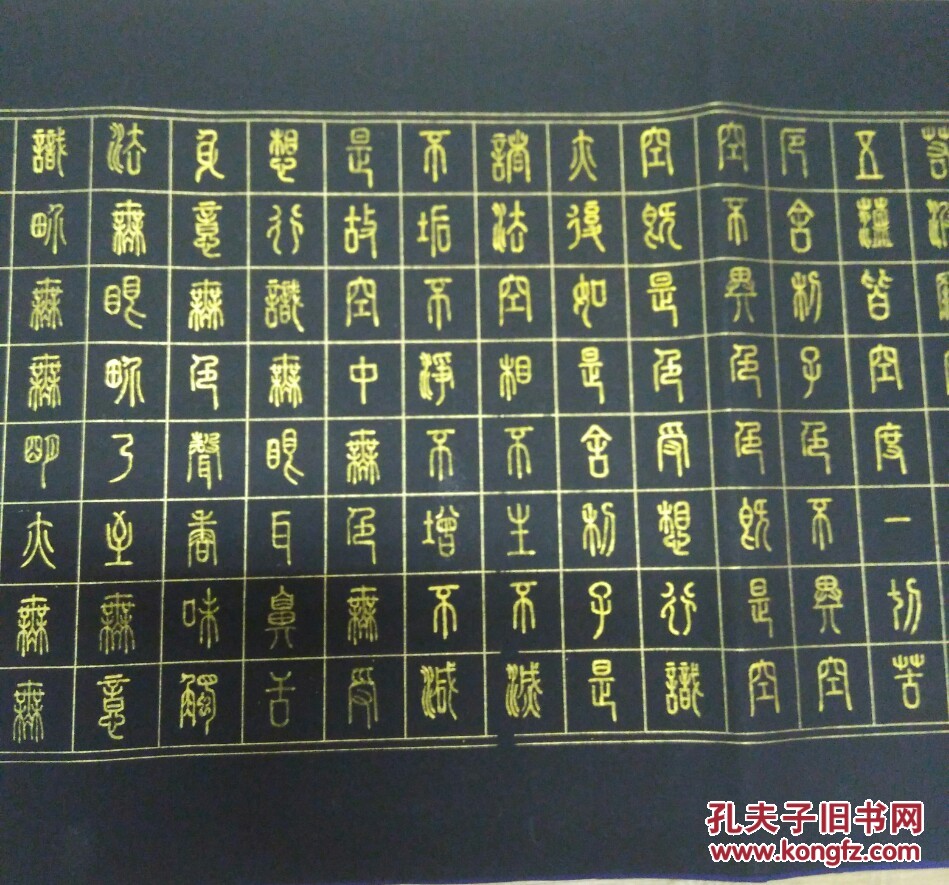 若波
五蘊皆空度一切苦
厄舍利子色不異空
空不異色色即是空
空即是色受想行識
亦復如是舍利子是
諸法空相不生不滅
不垢不淨不增不減
是故空中無色無受
想行識無眼耳鼻舌
身意無色聲香味觸
法無眼界乃至無意
識界無無明亦無無
孔夫子旧书网
www.kongfz.com